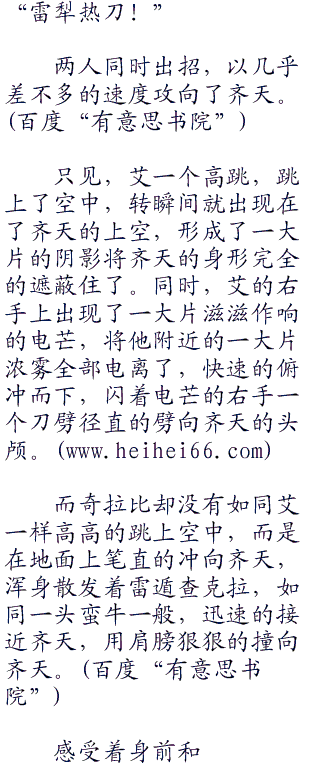 “雷犁热刀！”
两人同时出招，以几乎
差不多的速度攻向了齐天。
(百度“有意思书院”)
只见，艾一个高跳，跳
上了空中，转瞬间就出现在
了齐天的上空，形成了一大
片的阴影将齐天的身形完全
的遮蔽住了。同时，艾的右
手上出现了一大片滋滋作响
的电芒，将他附近的一大片
浓雾全部电离了，快速的俯
冲而下，闪着电芒的右手一
个刀劈径直的劈向齐天的头
颅。(www.heihei66.com)
而奇拉比却没有如同艾
一样高高的跳上空中，而是
在地面上笔直的冲向齐天，
浑身散发着雷遁查克拉，如
同一头蛮牛一般，迅速的接
近齐天，用肩膀狠狠的撞向
齐天。(百度“有意思书
院”)
感受着身前和